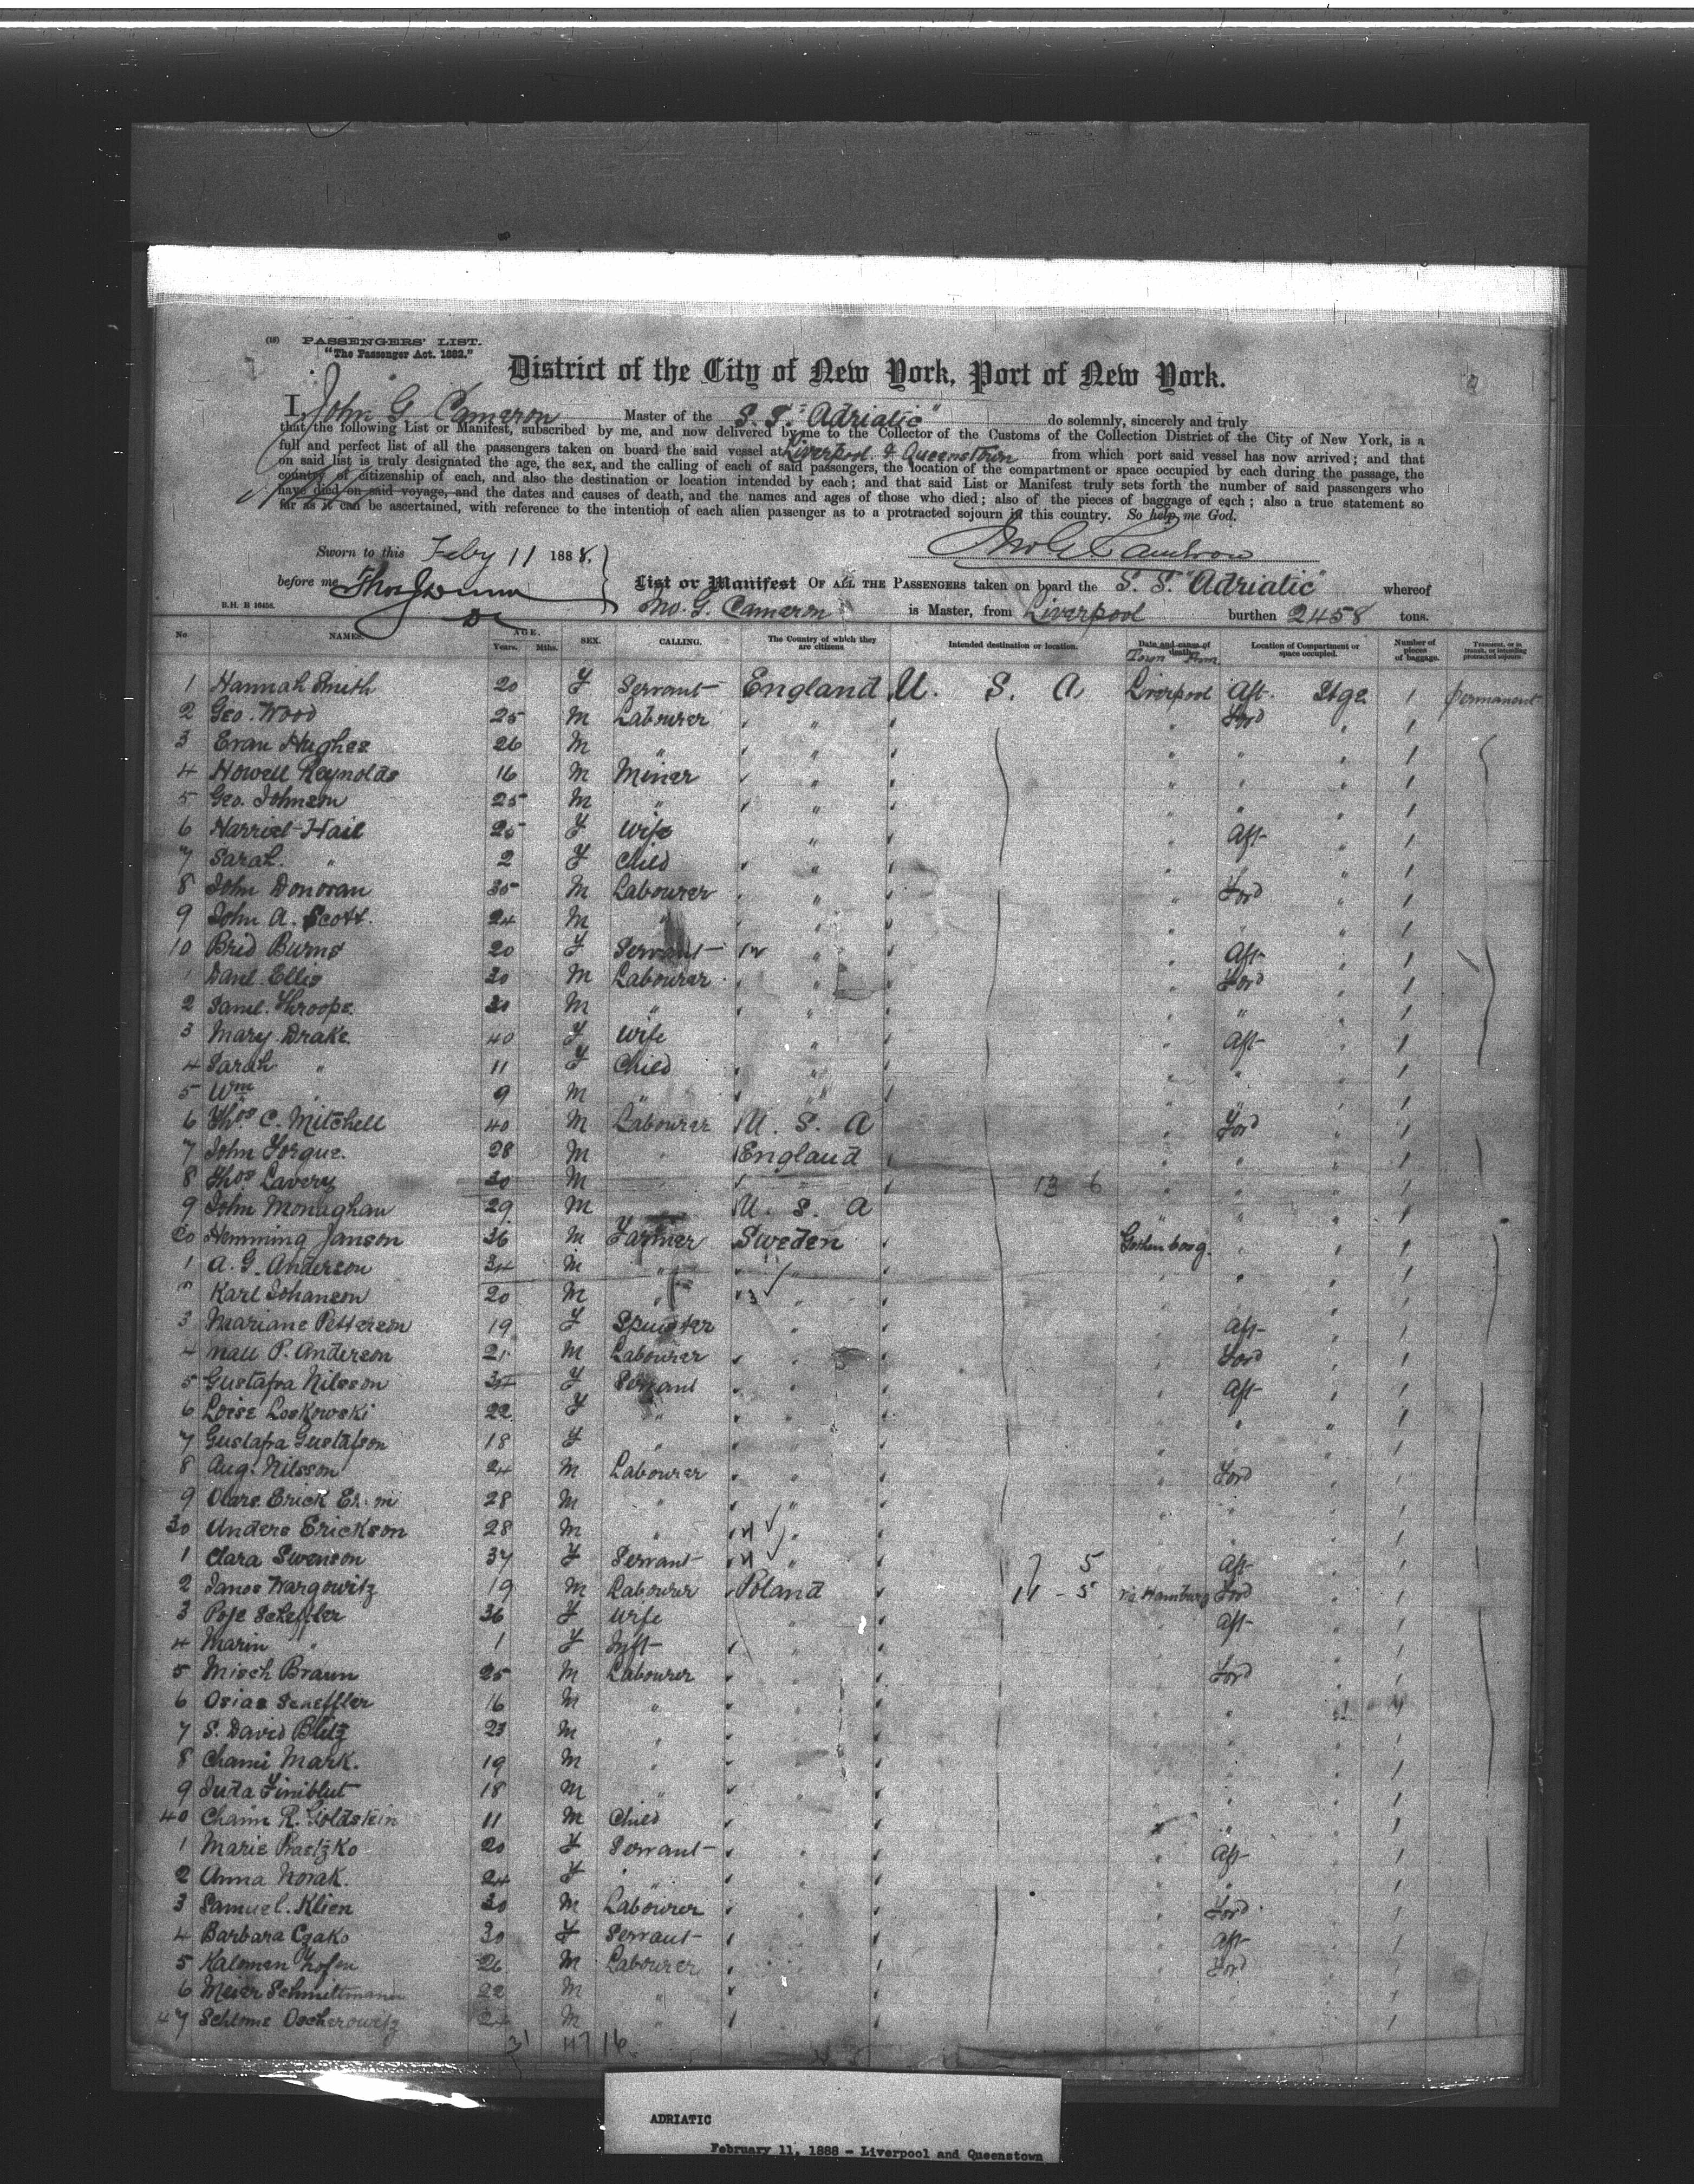 (18) PASSENGERS' LIST.
"The Passenger Act. 1882."
District of the City of New York, Port of New York.
I, John G. Cameron Master of the S. S. "Adriatic" do solemnly, sincerely and truly
that the following List or Manifest, subscribed by me, and now delivered by me to the Collector of the Customs of the Collection District of the City of New York, is a
full and perfect list of all the passengers taken on board the said vessel at Liverpool & Queenstown from which port said vessel has now arrived; and that
on said list is truly designated the age, the sex, and the calling of each of said passengers, the location of the compartment or space occupied by each during the passage, the
country of citizenship of each, and also the destination or location intended by each; and that said List or Manifest truly sets forth the number of said passengers who
have died on said voyage, and the dates and causes of death, and the names and ages of those who died; also of the pieces of baggage of each; also a true statement so
far as it can be ascertained, with reference to the intention of each alien passenger as to a protracted sojourn in this country. So help me God.
Jno G Cameron
Sworn to this Feby 11 1888,
before me
List or Manifest OF ALL THE PASSENGERS taken on board the S. S. "Adriatic" whereof
B.H. B 16458. Jno. G. Cameron is Master, from Liverpool burthen 2458 tons.
No NAMES. AGE. Years. Mths. SEX. CALLING. The Country of which they are citizens Intended destination or location. Date and cause of death. Town from Location of Compartment or space occupied. Number of pieces of baggage. Transient, or in transit, or intending protracted sojourn.
1 Hannah Smith 20 F Servant England U. S. A Liverpool Aft. Stge 1 permanent
2 Geo. Wood 25 M Labourer " " Ford " 1
3 Evan Hughes 26 M " " " " " 1
4 Howell Reynolds 16 M Miner " " " " 1
5 Geo. Johnson 25 M " " " " " 1
6 Harriet Hail 25 F Wife " " Aft " 1
7 Sarah " 2 F Child " " " " 1
8 John Donovan 35 M Labourer " " Ford " 1
9 John A. Scott. 24 M " " " " " 1
10 Brid Burns 20 F Servant " " Aft " 1
1 Danl Ellis 30 M Labourer " " Ford " 1
2 Saml. Throope 30 M " " " " " 1
3 Mary Drake 40 F Wife " " Aft " 1
4 Sarah " 11 F Child " " " " 1
5 Wm " 9 M " " " " " 1
6 Thos C. Mitchell 40 M Labourer U. S. A " Ford " 1
7 John Forgue. 28 M " England " " " 1
8 Thos Lavery 30 M " " 13 6 " " " 1
9 John Monaghan 29 M U. S. A " " " 1
20 Hemming Janson 36 M Farmer Sweden Gothenborg. " " 1
1 A. G. Anderson 34 M " " " " " 1
Karl Johanson 20 M " " " " " 1
3 Mariane Petterson 19 F Spinster " " Aft " 1
4 P. Anderson 21 M Labourer " " Ford " 1
5 Gustafva Nilsson F Servant " " Aft " 1
6 Loise Loskowski 22 F " " " " " 1
7 Gustafva Gustafson 18 F " " " " " 1
8 Aug. Nilsson 24 M Labourer " " Ford " 1
9 Erick 28 M " " " " " 1
30 Anders Erickson 28 M " " " " " 1
1 Clara Swenson 37 F Servant " 5 " Aft " 1
2 Janos Wargowitz 19 M Labourer Poland - 5 via Hamburg Ford " 1
3 Scheffler 36 F Wife " " Aft " 1
4 Marin " 1 F Inft " " " " 1
5 Misch Braun 25 M Labourer " " Ford " 1
6 Osias Scheffler 16 M " " " " " 1
7 S. David Blitz 23 M " " " " " 1
8 Chami Mark. 19 M " " " " " 1
9 Juda Finiblut 18 M " " " " " 1
40 Chaim R. Goldstein 11 M Child " " " " 1
1 Marie 20 F Servant " " Aft " 1
2 Anna Novak. 24 F " " " " " 1
3 Samuel. Klien 30 M Labourer " " Ford " 1
4 Barbara Czako 30 F Servant " " Aft " 1
5 Kalman 26 M Labourer " " Ford " 1
6 Meier Schmittmann 22 M " " " " " 1
47 Schlome Oscherowitz 24 M " " " " " 1
31 47 16
ADRIATIC
February 11, 1888 - Liverpool and Queenstown